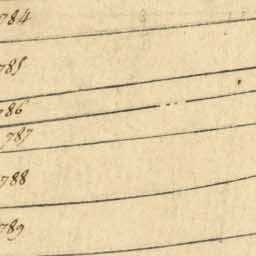 784
785
786
787
788
789